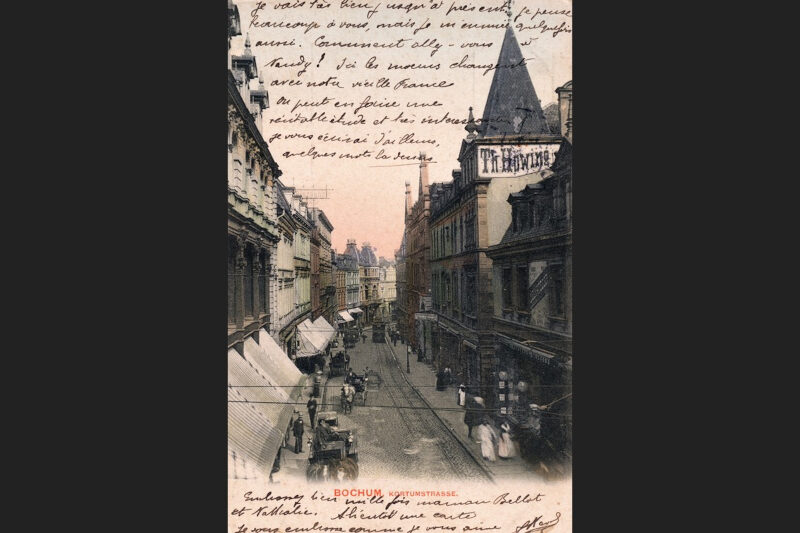 je vais très bien, jusqu'à présent, je pense
beaucoup à vous, mais je m'ennuie quelquefois
aussi. Comment allez-vous à
Nancy? Ici les moeurs changent
avec notre vieille France
On peut en faire une
véritable étude et très intéressante
je vous écrirai d'ailleurs,
quelques mots là dessus
Th. Hüwing
BOCHUM, KORTUMSTRASSE.
Embrassez bien mille fois maman Bellot
et Nathalie. A bientôt une carte
je vous embrasse comme je vous aime